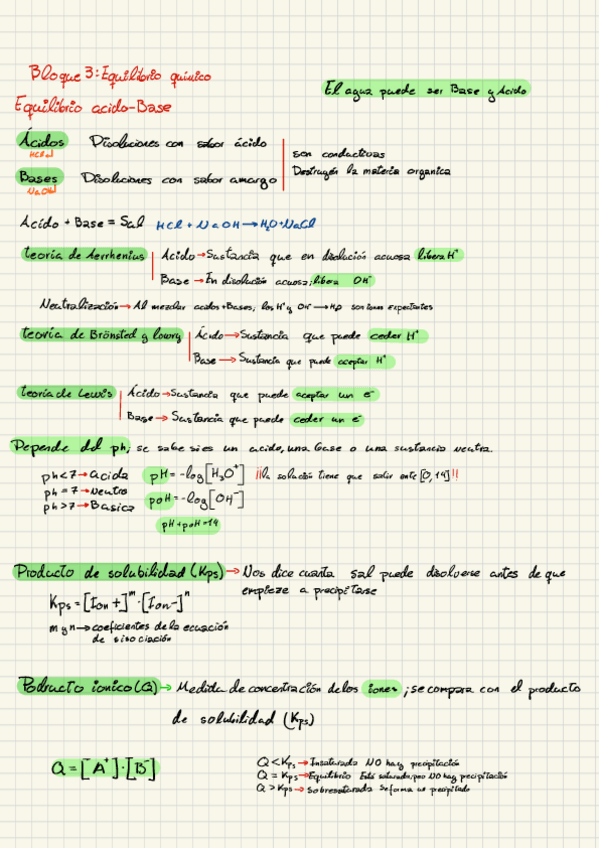 Bloque 3: Equilibrio químico
El agua puede ser Base y Ácido
Equilibrio acido-Base
Ácidos Disoluciones con sabor ácido
HCl
son conductivas
Destruyen la materia organica
Bases Disoluciones con sabor amargo
NaOH
Acido + Base = Sal HCl + NaOH → H₂O + NaCl
teoria de Aerrhenius Acido → Sustancia que en disolución acuosa libera H⁺
Base → En disolución acuosa; libera OH⁻
Neutralización → Al mezclar acidos + Bases, los H⁺ y OH⁻ → H₂O son iones expectantes
teoría de Brönsted y lowry Ácido → Sustancia que puede ceder H⁺
Base → Sustancia que puede aceptar H⁺
teoría de Lewis Ácido → Sustancia que puede aceptar un e⁻
Base → Sustancia que puede ceder un e⁻
Depende del ph, se sabe si es un acido, una base o una sustancia neutra.
ph < 7 → acida pH = -log[H₃O⁺] !!la solución tiene que salir ente [0,14]!!
ph = 7 → Neutro
poH = -log[OH⁻]
ph > 7 → Basica
pH + poH = 14
Producto de solubilidad (Kps) → Nos dice cuanta sal puede disolverse antes de que
empieze a precipitarse
Kps = [Ion +]ᵐ · [Ion-]ⁿ
m y n → coeficientes de la ecuación
de disociación
Podructo ionico (Q) → Medida de concentración de los iones; se compara con el producto
de solubilidad (Kps)
Q = [A⁺] · [B⁻]
Q < Kps → Insaturada NO hay precipitación
Q = Kps → Equilibrio Está saturada, pero NO hay precipitación
Q > Kps → sobresaturada Se forma un precipitado